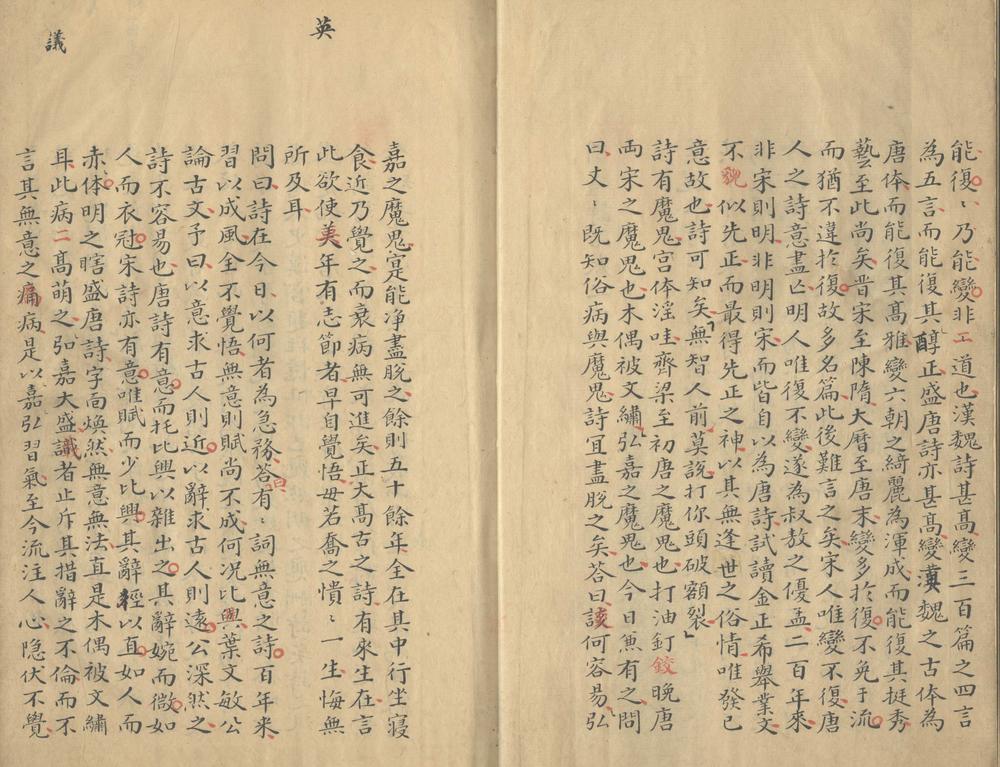 能復〻乃能變非二道也漢魏詩甚髙變三百篇之四言
為五言而能復其醇正盛唐詩亦甚髙變漢魏之古体為
唐体而能復其髙雅變六朝之綺麗為渾成而能復其挺秀
藝至此尚矣晋宋至陳隋大曆至唐末變多於復不免于流
而猶不違於復故多名篇此後難言之矣宋人唯變不復唐
人之詩意盡亡明人唯復不變遂為叔敖之優孟二百年來
非宋則明非明則宋而皆自以為唐詩試讀金正希舉業文
不貌似先正而最得先正之神以其無逢世之俗情唯發已
意故也詩可知矣無智人前莫說打你頭破額裂
詩有魔鬼宫体淫哇齊梁至初唐之魔鬼也打油釘鉸晚唐
両宋之魔鬼也木偶被文繡弘嘉之魔鬼也今日魚有之問
曰丈〻既知俗病與魔鬼詩冝盡脫之矣荅曰談何容易弘
嘉之魔鬼寔能净盡脫之餘則五十餘年全在其中行坐寝
食近乃覺之而衰病無可進矣正大髙古之詩有來生在言
此欲使英年有志節者早自覺悟毋若喬之憒〻一生悔無
所及耳
問曰詩在今日以何者為急務荅曰有〻詞無意之詩百年来
習以成風全不覺悟無意則賦尚不成何况比興葉文敏公
論古文予曰以意求古人則近以辭求古人則遠公深然之
詩不容易也唐詩有意而托比興以雜出之其辭婉而微如
人而衣冠宋詩亦有意唯賦而少比興其辭徑以直如人而
赤体明之瞎盛唐詩字面煥然無意無法直是木偶被文繡
耳此病二髙萌之弘嘉大盛識者止斥其措辭之不倫而不
言其無意之為病是以弘嘉習氣至今流注人心隐伏不覺
英
議